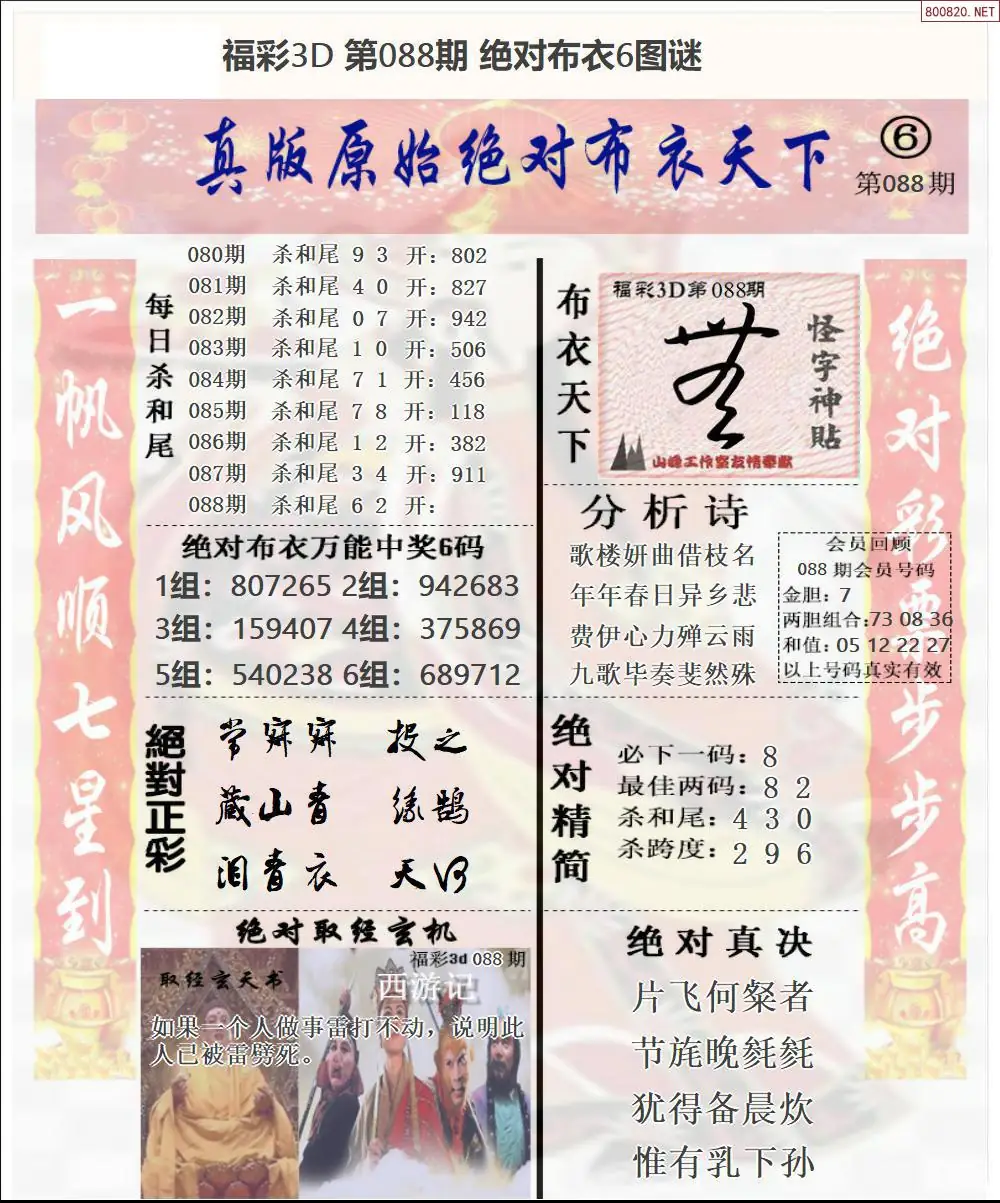 800820.NET
福彩3D 第088期 绝对布衣6图谜
真版原始绝对布衣天下
6
第088期
一帆风顺七星到
每日杀和尾
080期 杀和尾 9 3 开：802
081期 杀和尾 4 0 开：827
082期 杀和尾 0 7 开：942
083期 杀和尾 1 0 开：506
084期 杀和尾 7 1 开：456
085期 杀和尾 7 8 开：118
086期 杀和尾 1 2 开：382
087期 杀和尾 3 4 开：911
088期 杀和尾 6 2 开：
绝对布衣万能中奖6码
1组：807265 2组：942683
3组：159407 4组：375869
5组：540238 6组：689712
絕對正彩
常寐寐 投之
藏山青 鹄
泪青衣 天河
绝对取经玄机
福彩3d 088 期
西游记
取经玄天书
如果一个人做事雷打不动，说明此
人已被雷劈死。
布衣天下
福彩3D第088期
怪字神貼
山峰工作室友情奉献
分析诗
歌楼妍曲借枝名
年年春日异乡悲
费伊心力殚云雨
九歌毕奏斐然殊
会员回顾
088 期会员号码
金胆：7
两胆组合:73 08 36
和值：05 12 22 27
以上号码真实有效
绝对精简
必下一码：8
最佳两码：8 2
杀和尾：4 3 0
杀跨度：2 9 6
绝对真决
片飞何粲者
节旄晚毵毵
犹得备晨炊
惟有乳下孙
绝对彩票步步高